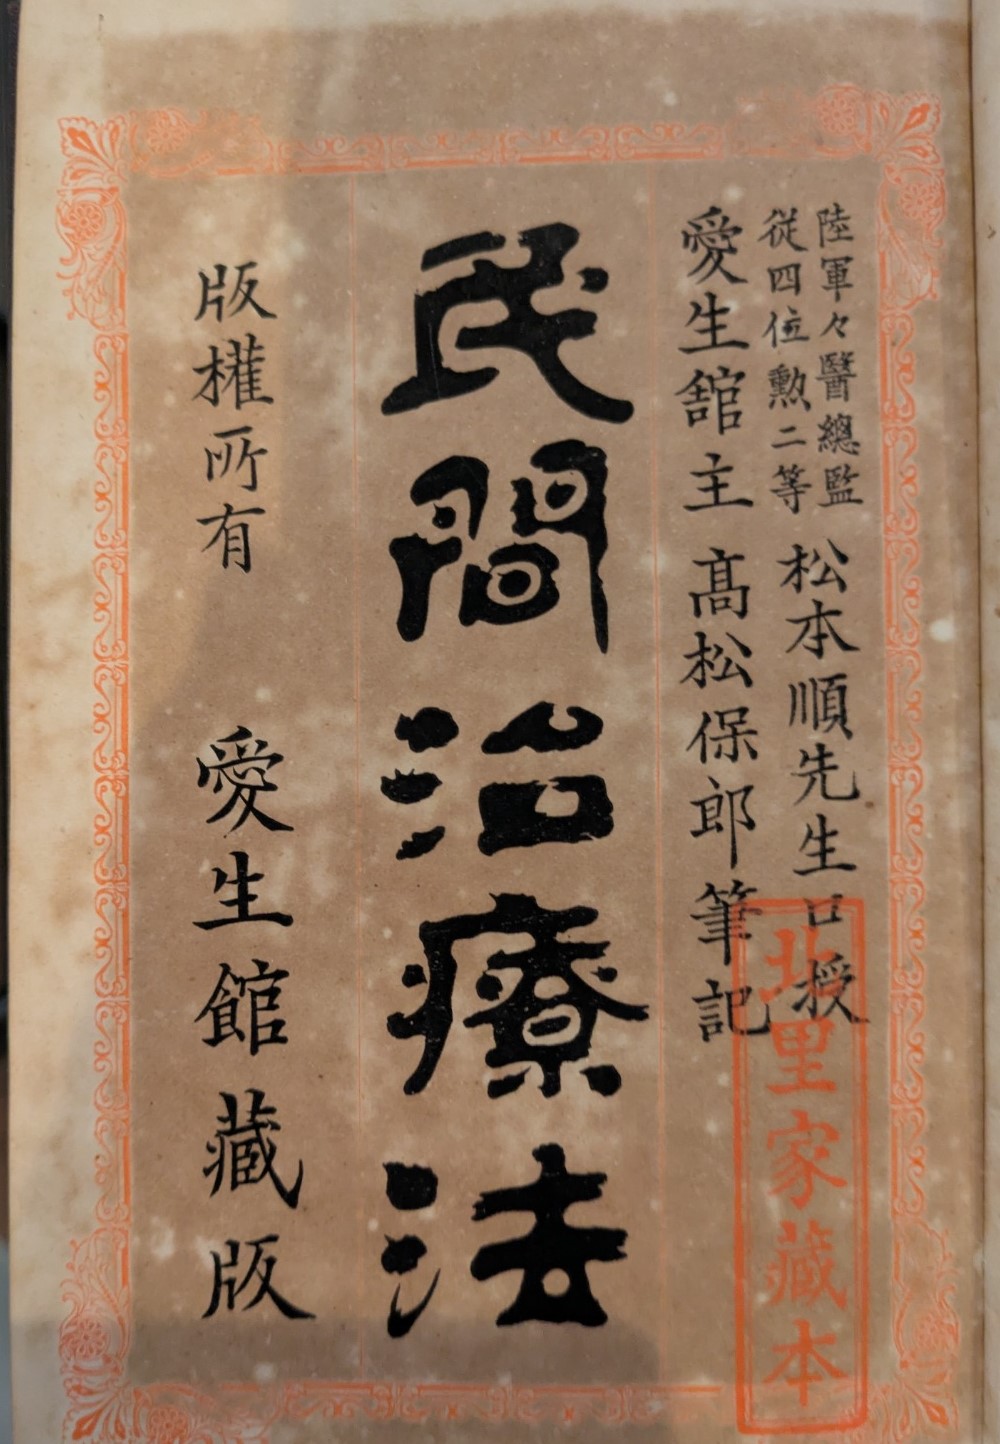 陸軍々醫總監
従四位勲二等
松本順先生口授
愛生舘主 髙松保郎筆記
民間治療法
版權所有 愛生館藏版
北里家藏本